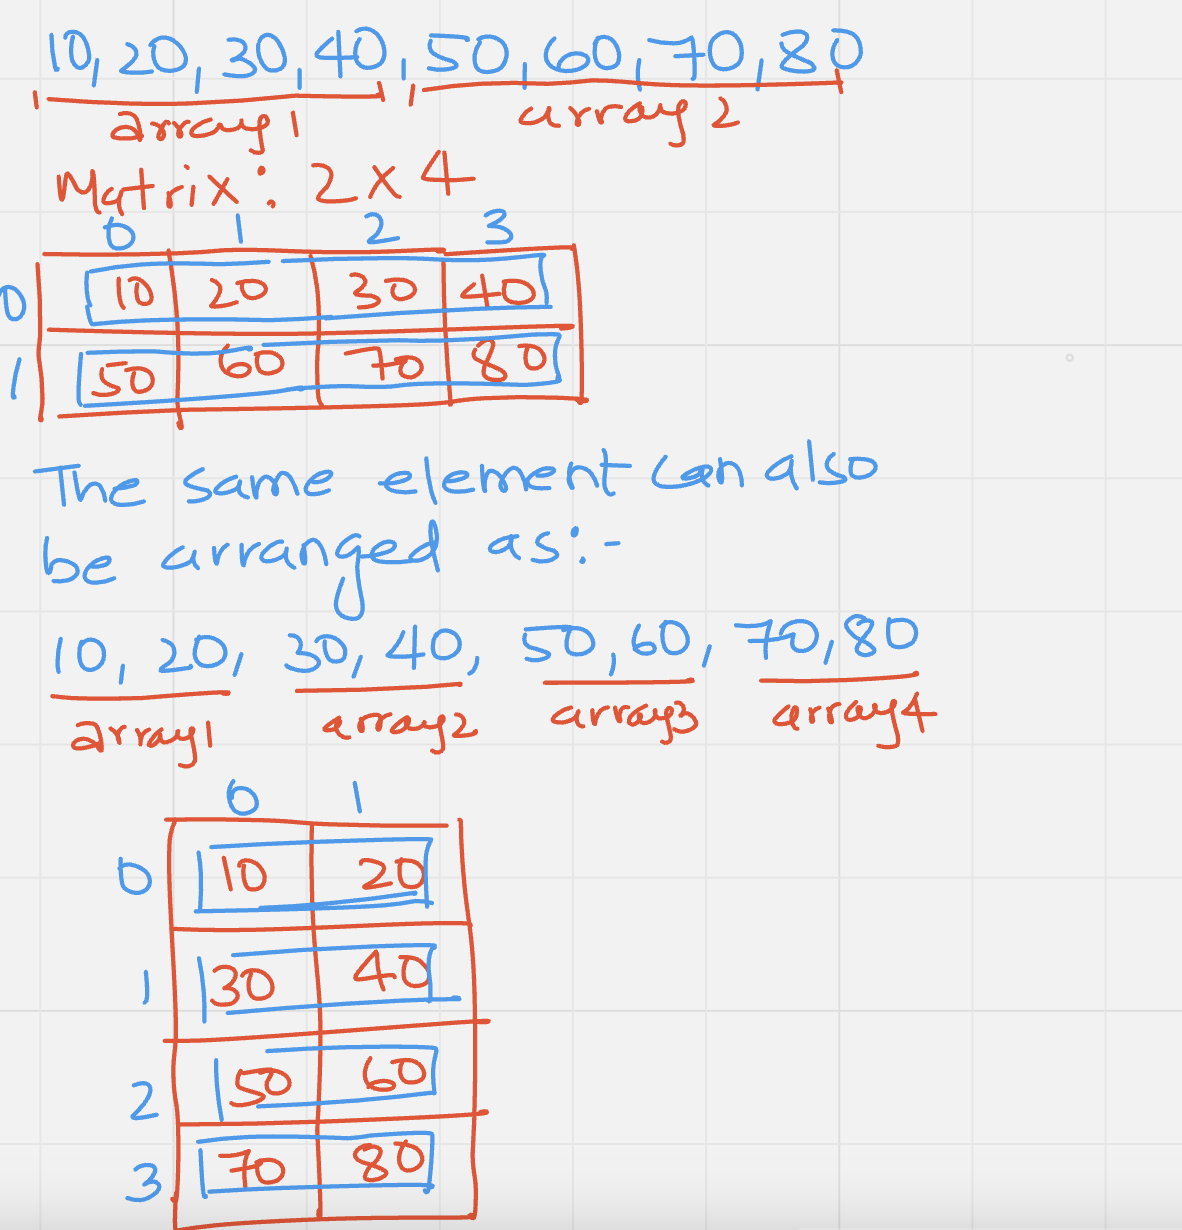 10, 20, 30, 40, 50, 60, 70, 80
array1 array2
Matrix: 2x4
0 1 2 3
0 10 20 30 40
1 50 60 70 80
The same element can also
be arranged as:-
10, 20, 30, 40, 50, 60, 70, 80
array1 array2 array3 array4
0 1
0 10 20
1 30 40
2 50 60
3 70 80